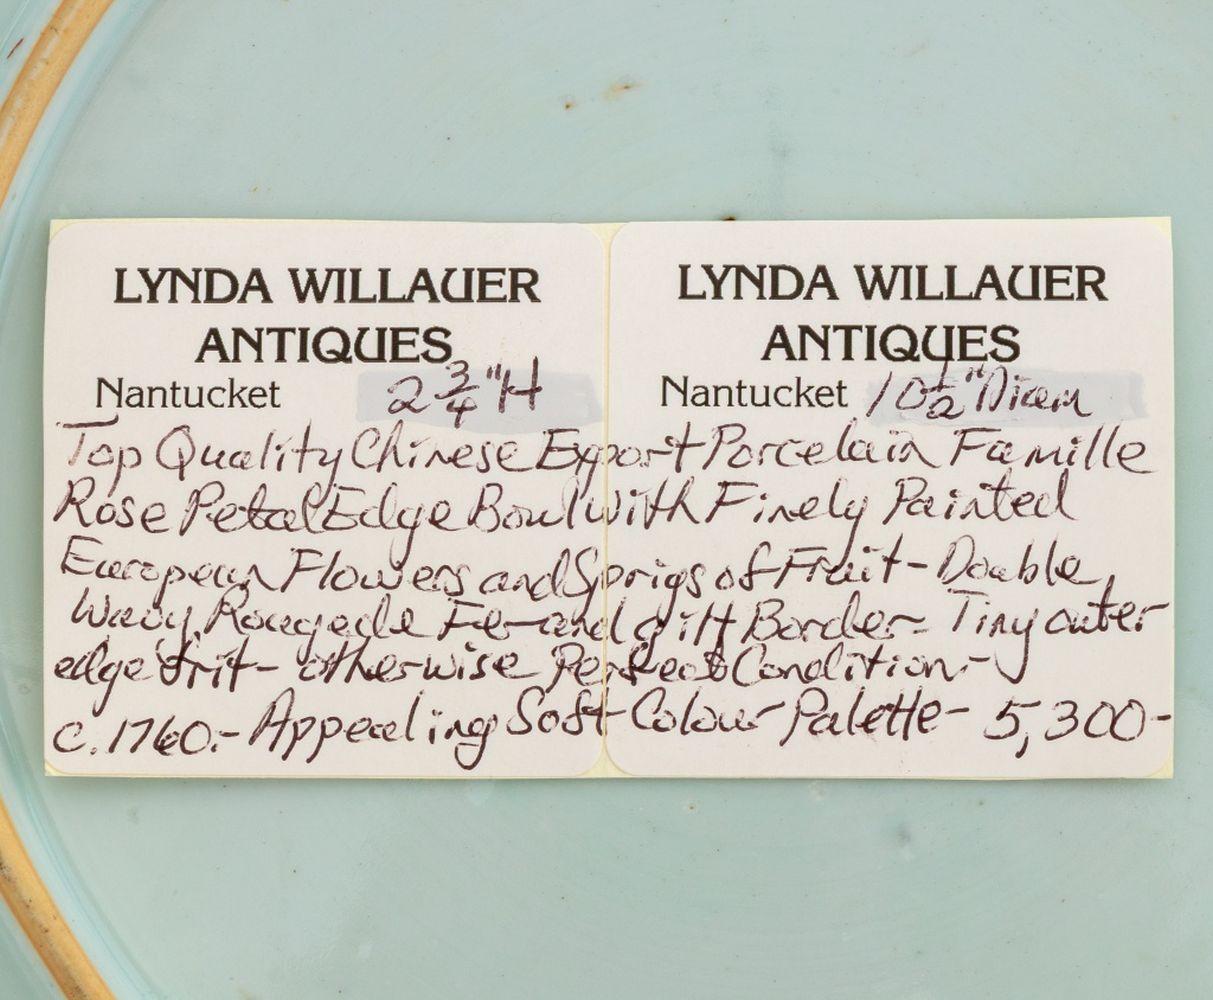 LYNDA WILLAUER
ANTIQUES
Nantucket 2 3/4" H
LYNDA WILLAUER
ANTIQUES
Nantucket 10 1/2" Diam
Top Quality Chinese Export Porcelain Famille
Rose Petal Edge Bowl with Finely Painted
European Flowers and Sprigs of Fruit - Double,
Wavy, Rouge de Fer and gilt Border - Tiny outer
edge frit - otherwise Perfect Condition -
c. 1760. - Appealing Soft Colour Palette - 5,300-